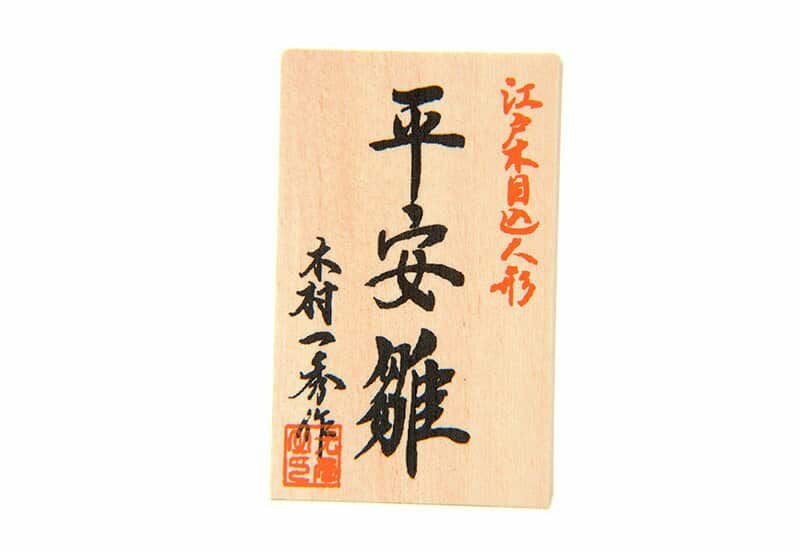 江戸木目込人形
平安雛
木村一秀作